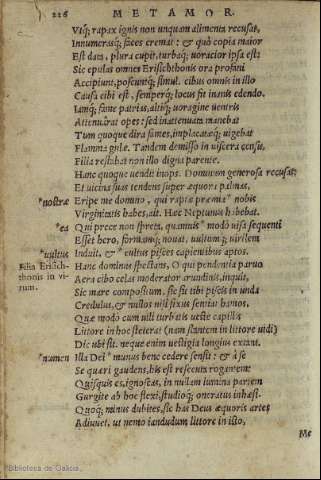 226 METAMOR.
Vtq; rapax ignis non unquam alimenta recusat,
Innumerasq; faces cremat: & quò copia maior
Est data, plura cupit, turbaq; uoracior ipsa est:
Sic epulas omnes Erisichthonis ora profani
Accipiunt, poscuntq; simul. cibus omnis in illo
Causa cibi est, semperq; locus fit inanis edendo.
Iamq; fame patrias, altiq; uoragine uentris
Attenuârat opes: sed inattenuata manebat
Tum quoque dira fames, implacatæq; uigebat
Flamma gulæ. Tandem demisso in uiscera censu,
Filia restabat non illo digna parente.
Hanc quoque uendit inops. Dominum generosa recusat:
Et uicina suas tendens super æquora palmas,
*nostræ Eripe me domino, qui raptæ præmia* nobis
Virginitatis habes, ait. Hæc Neptunus habebat.
*ea Qui prece non spreta, quamuis* modò uisa sequenti
Esset hero, formamq; nouat, uultumq; uirilem
*uultus Induit, &* cultus pisces capientibus aptos.
Filia Erisich-
thonis in vi-
rum.
Hanc dominus spectans, O qui pendentia paruo
Aera cibo celas moderator arundinis, inquit,
Sic mare compositum, sic sit tibi piscis in unda
Credulus, & nullos nisi fixus sentiat hamos.
Quæ modo cum uili turbatis ueste capillis
Littore in hoc steterat (nam stantem in littore uidi)
Dic ubi sit. neque enim uestigia longius extant.
*numen Illa Dei* munus bene cedere sensit: & à se
Se quæri gaudens, his est resecuta rogantem:
Quisquis es, ignoscas, in nullam lumina partem
Gurgite ab hoc flexi, studioq; operatus inhæsi.
Quoq; minus dubites, sic has Deus æquoris artes
Adiuuet, ut nemo iandudum littore in isto,
Me
Biblioteca de Galicia